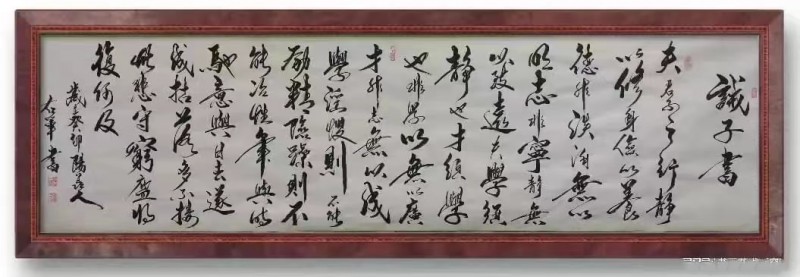 誡子書
夫君子之行靜
以修身儉以養
德非淡泊無以
明志非寧靜無
以致遠夫學須
靜也才須學
也非學以無以廣
才非志無以成
學淫慢則不能
勵精險躁則不
能冶性年與時
馳意與日去遂
成枯落多不接
世悲守窮廬將
復何及
歲癸卯陽人
書